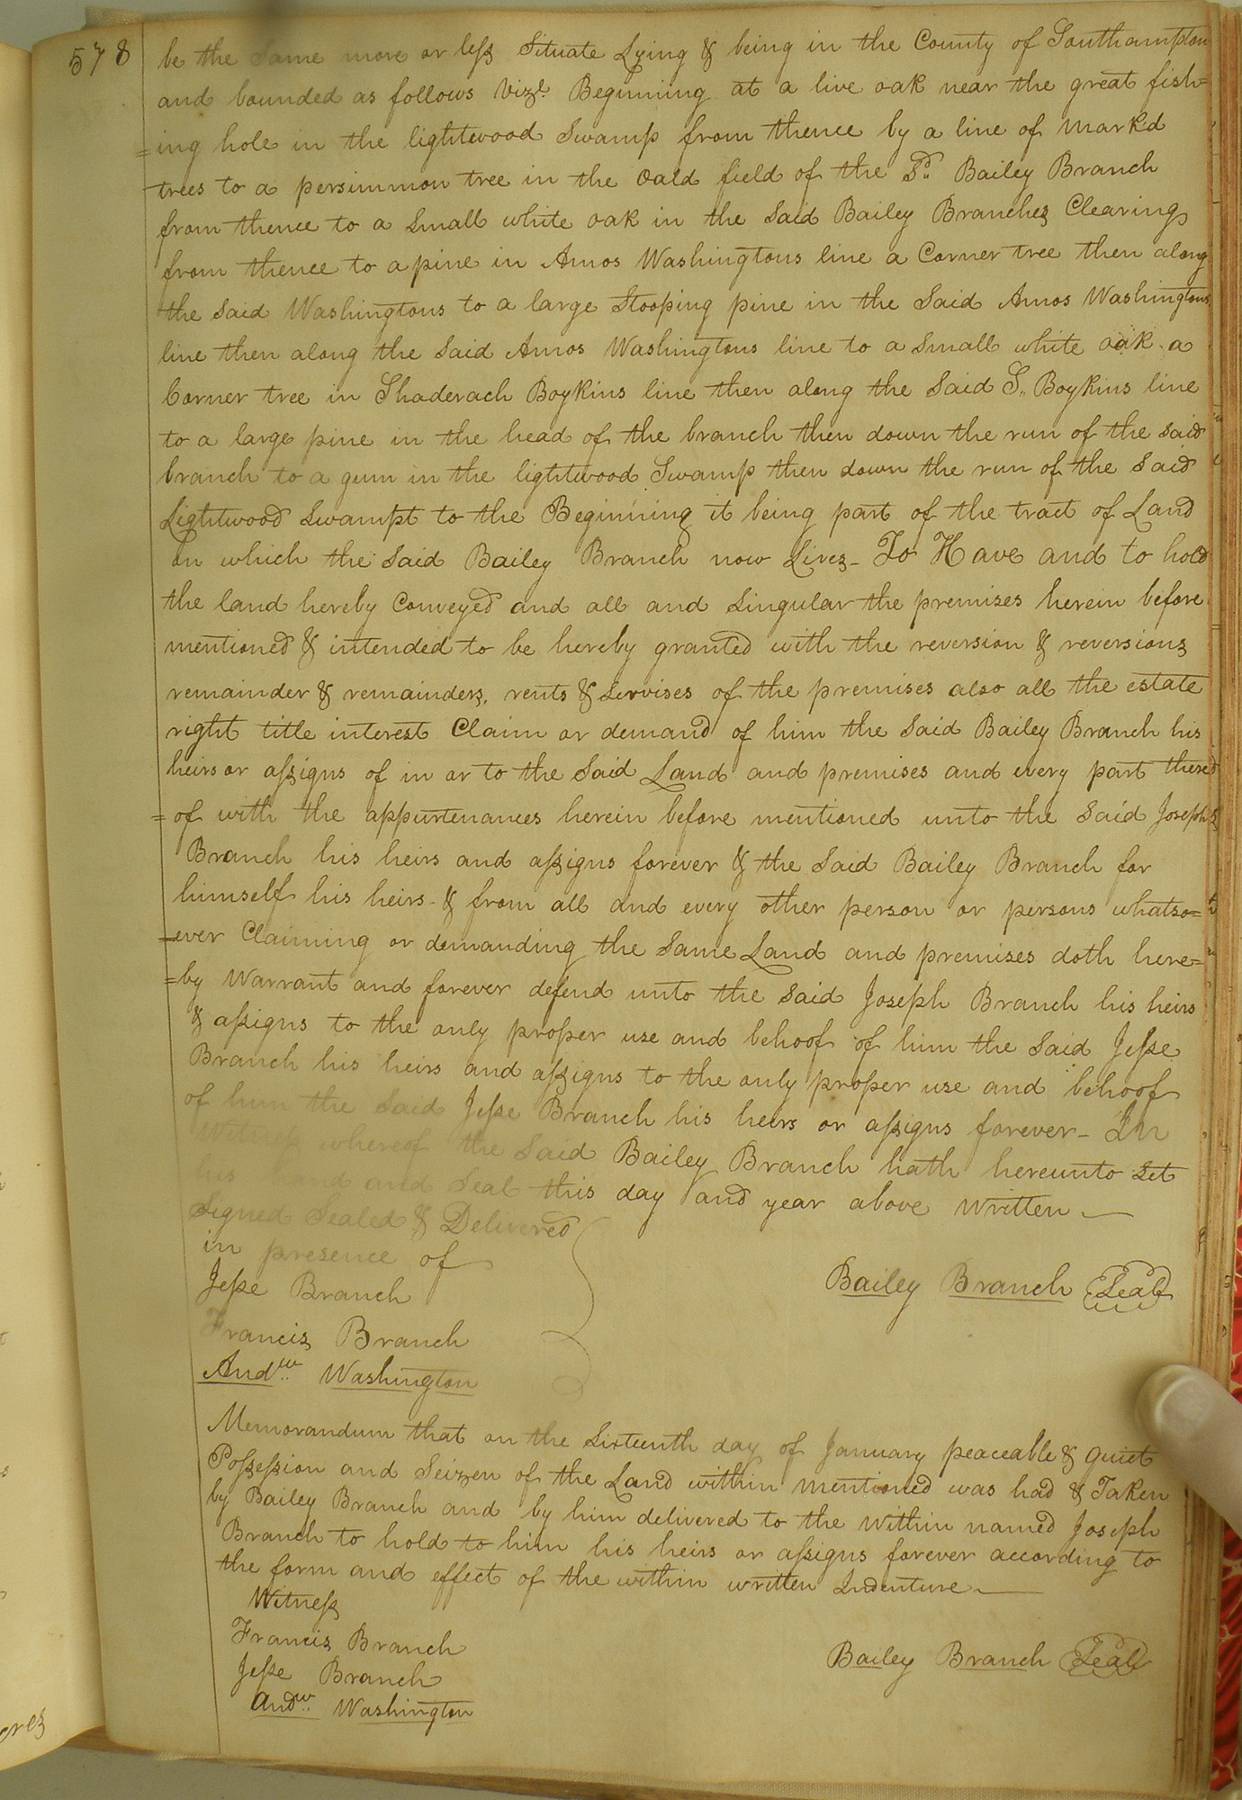 578
be the Same more or less Situate Lying & being in the County of Southampton
and bounded as follows Vizt. Beginning at a live oak near the great fish=
=ing hole in the lightwood Swamp from thence by a line of markd
trees to a persimmon tree in the oald field of the Sd. Bailey Branch
from thence to a Small white oak in the Said Bailey Branches Clearing
from thence to a pine in Amos Washingtons line a Corner tree then along
the Said Washingtons to a large Stooping pine in the Said Amos Washingtons
line then along the Said Amos Washingtons line to a Small white oak a
Corner tree in Shaderach Boykins line then along the Said S,, Boykins line
to a large pine in the head of the branch then down the run of the said
branch to a gum in the lightwood Swamp then down the run of the Said
Lightwood Swampt to the Beginning it being part of the tract of Land
on which the Said Bailey Branch now Lives - To Have and to hold
the land hereby Conveyed and all and Singular the premises herein before
mentioned & intended to be hereby granted with the reversion & reversions
remainder & remainders, rents & Servises of the premises also all the estate
right title interest Claim or demand of him the Said Bailey Branch his
heirs or assigns of in or to the Said Land and premises and every part there
=of with the appurtenances herein before mentioned unto the Said Joseph
Branch his heirs and assigns forever & the Said Bailey Branch for
himself his heirs & from all and every other person or persons whatso=
=ever Claiming or demanding the Same Land and premises doth here=
=by Warrant and forever defend unto the Said Joseph Branch his heirs
& assigns to the only proper use and behoof of him the Said Jesse
Branch his heirs and assigns to the only proper use and behoof
of him the Said Jesse Branch his heirs or assigns forever - In
whereof the Said Bailey Branch hath hereunto Set
his and Seal this day and year above written
Signed Sealed & Delivered
in presence of
Jesse Branch
Bailey Branch Seal
Francis Branch
Andw. Washington
Memorandum that on the Sixteenth day of January peaceable & Quiet
Possession and Seizen of the Land within mentioned was had & Taken
by Bailey Branch and by him delivered to the within named Joseph
Branch to hold to him his heirs or assigns forever according to
the form and effect of the within written Indenture
Witness
Francis Branch
Bailey Branch Seal
Jesse Branch
Andw. Washington